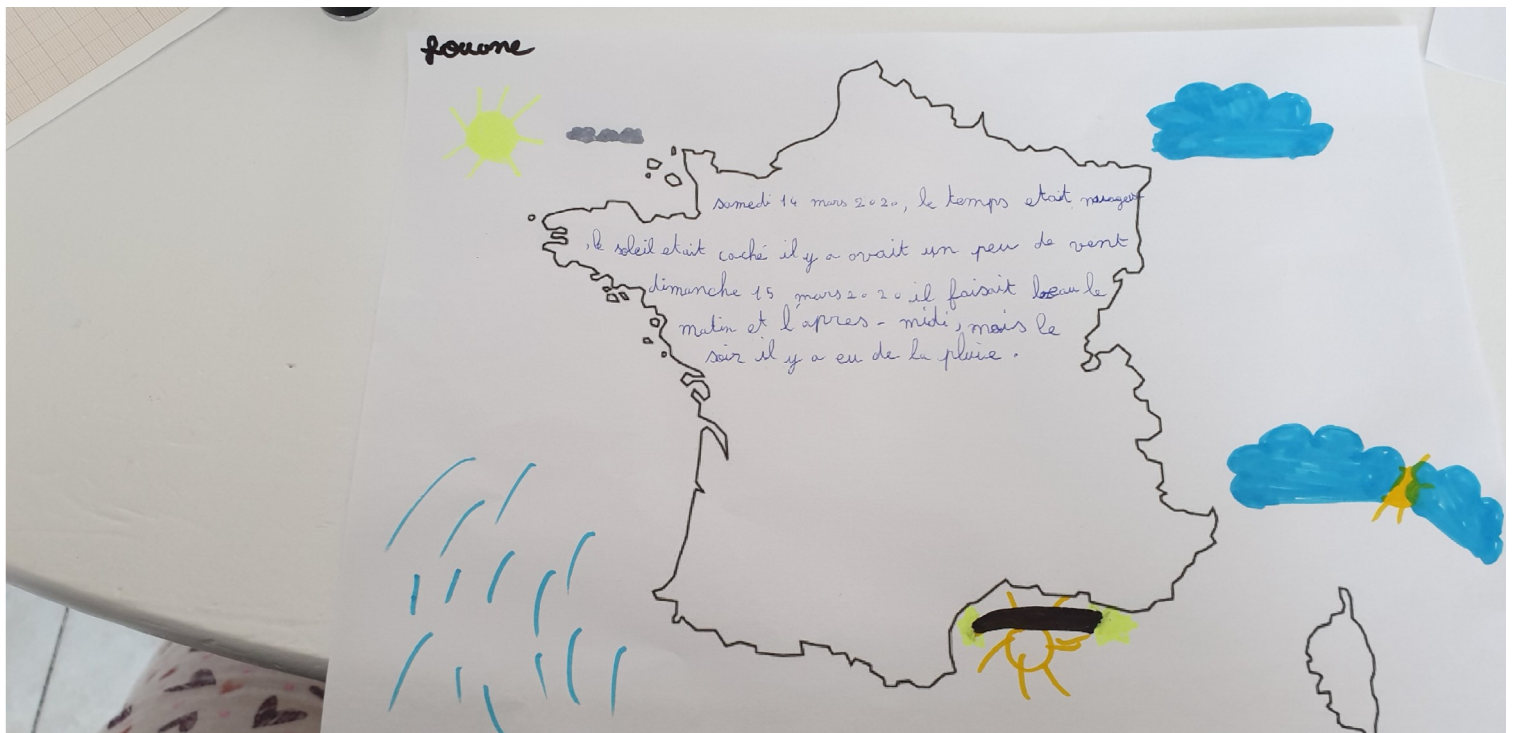 Rouane
samedi 14 mars 2020, le temps etait nuageux
, le soleil etait caché il y a avait un peu de vent
dimanche 15 mars 2020 il faisait beau le
matin et l'apres-midi, mais le
soir il y a eu de la pluie.